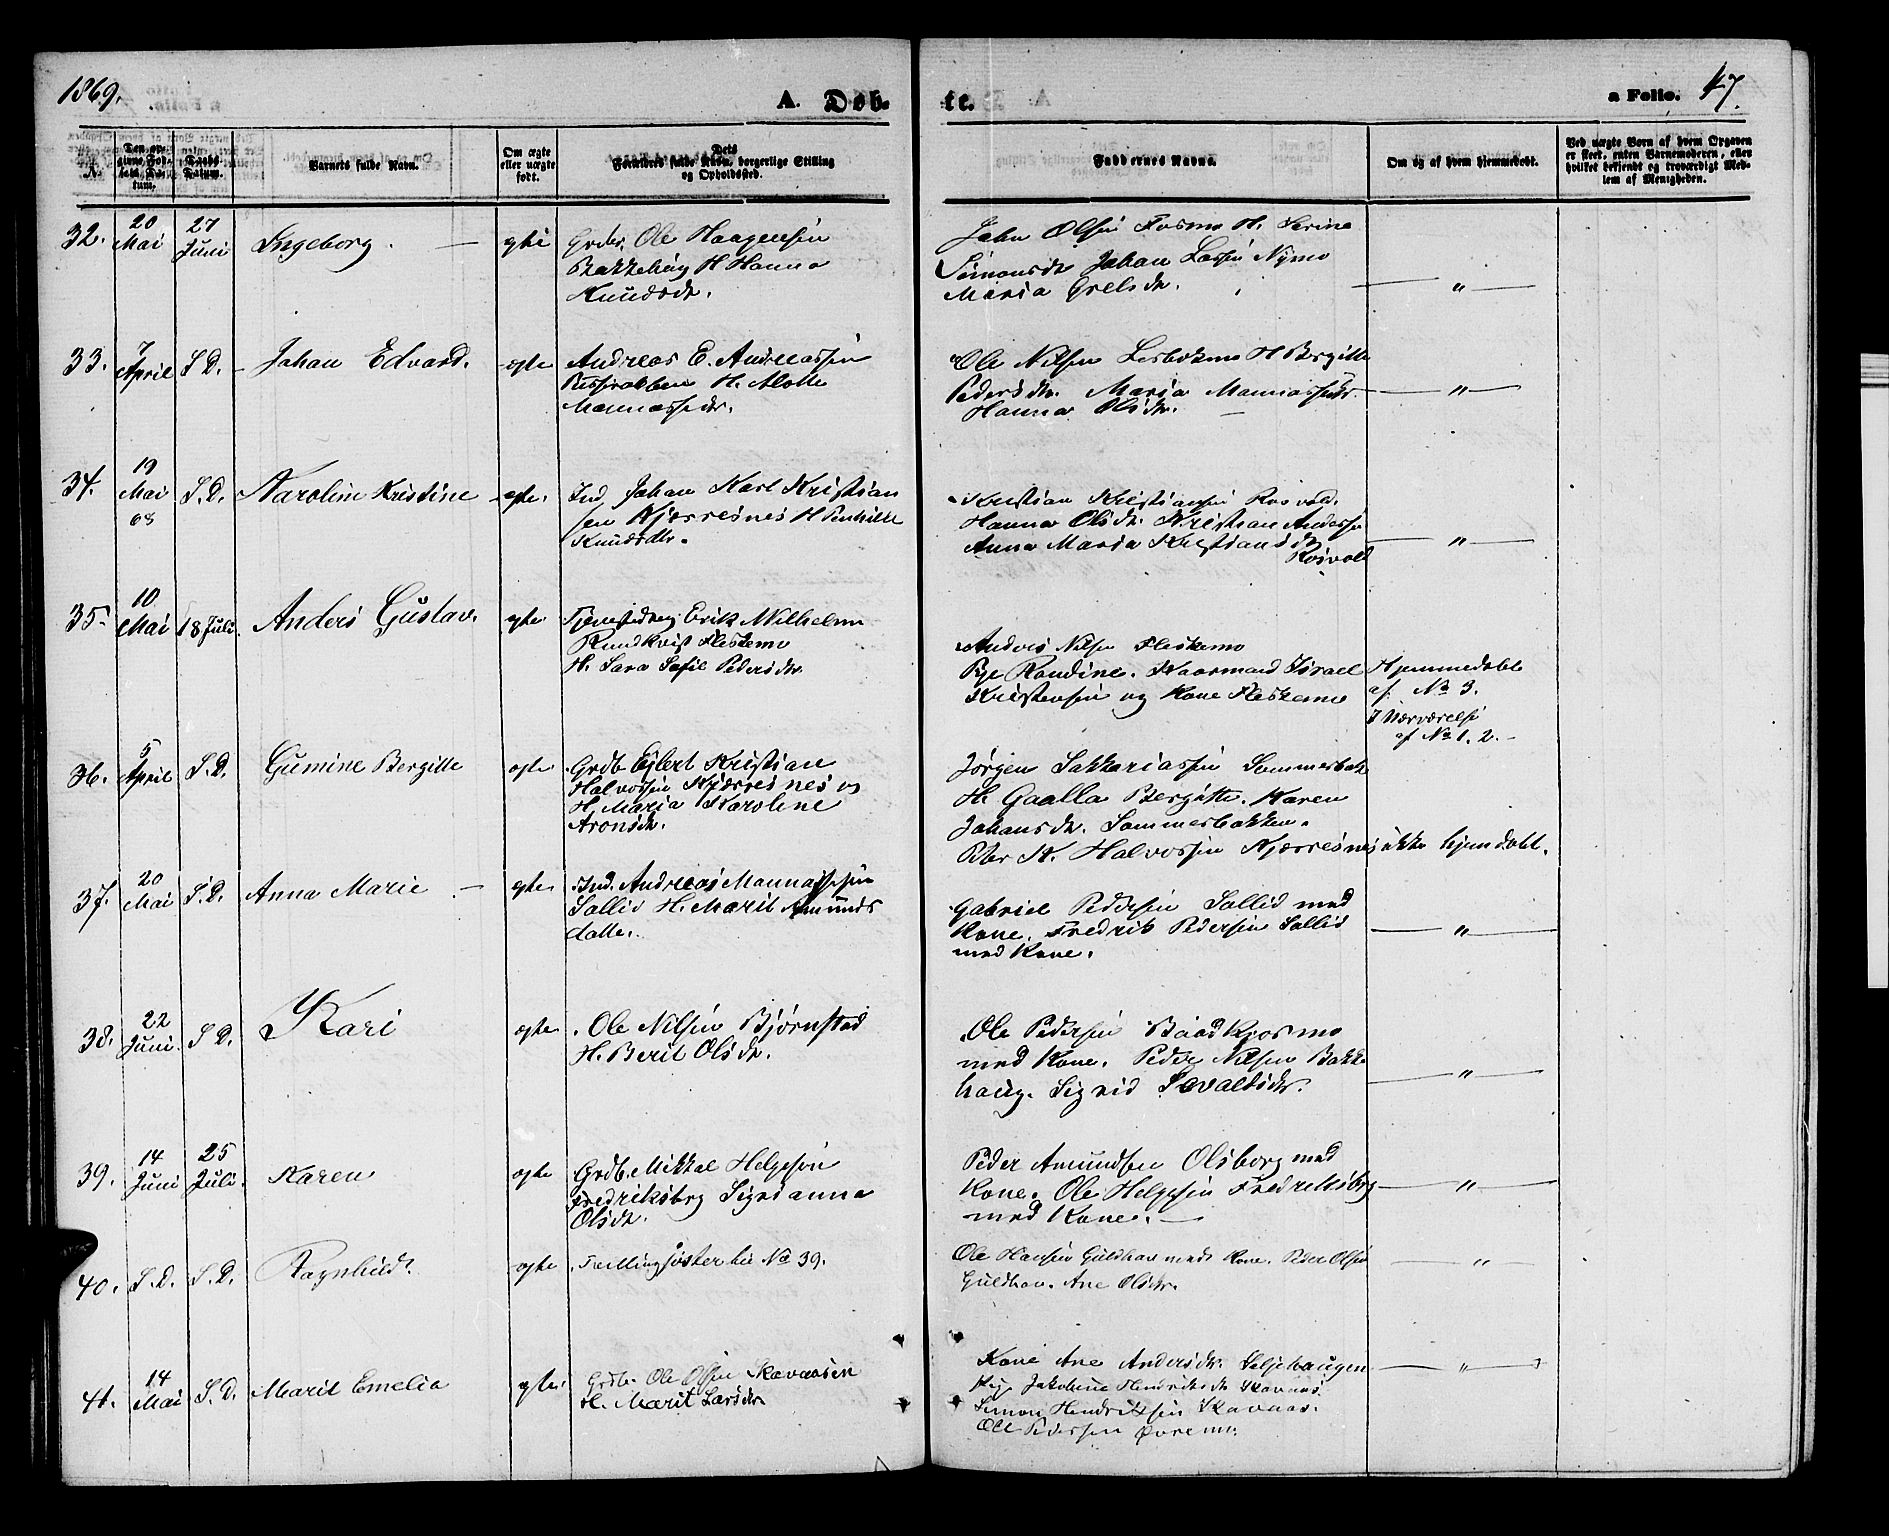 1869.
A. Døb-
te.
a Folio. 47.
N.
Den angivne Fødsels Datum.
Daabs Datum.
Barnets fulde Navn.
Om ægte eller uægte født.
Dets Forældres fulde Navn, borgerlige Stilling og Opholdssted.
Faddernes Navne.
Om og af hvem hjemmedøbt.
Ved uægte Børn af hvem Opgaven er skeet, enten Barnemoderen, eller hvilket bekjendt og troværdigt Medlem af Menigheden.
32. 20 Mai 27 Juni Ingeborg. — ægte
Grdbr. Ole Haagensen
Bakkehaug H Hanna
Knudsdt.
John Olsen Fosmo H. Serine
Simonsdt Johan Larsen Nymo
Maria Grelsdt.
— " —
33. 7 April S D. Johan Edvard. ægte
Andreas E. Andreassen
H. Alette
Mannassedtr.
Ole Nilsen H Bergitte
Pedersdtr. Maria Mannassedtr
Hanna Olsdtr. —
— " —
34. 19 Mai 68 S. D. Karoline Kristine ægte.
Ind. Johan Karl Kristian
sen Kjærresnes H Pernille
Knudsdtr.
Kristian Kristiansen Rosvold.
Hanna Olsdt. Kristian Anderse
Anna Maria Kristiansdt
Rosvold
— " —
35. 10 Mai 18 Juli. Anders Gustav. ægte
Tjenestedreng Erik Wilhelm
Rundkvist Fleskemo
H. Sara Sofie Pedersdtr
Anders Nilsen Fleskemo
Pge Randine. Kaarmand Israel
Kristensen og Kone Fleskemo
Hjemmedøbt
af No 3.
I Nærværelse
af No 1. 2. -
36. 5 April S. D. Gumine Bergitte ægte
Grdb. Eilert Kristian
Halvorsen Kjærresnes og
H. Maria Karoline
Aronsdt.
Jørgen Sakkariassen Sommerbak
H. Gaalla Bergitte. Karen
Johansdt. Sommerbakken.
Peter K. Halvorsen Kjærresnes
ikke hjemdøbt.
37. 20 Mai S. D. Anna Marie — ægte
Ind. Andreas Mannassesen
Sollid H. Marit Amunds
datter.
Gabriel Pedersen Sollid med
Kone. Fredrik Pedersen Sollid
med Kone.
— " —
38. 22 Juni. S D. Kari ægte
Ole Nilsen Bjørnstad
H. Berit Olsdt.
Ole Pedersen Baadkjosmo
med Kone. Peder Nilsen Bakke
haug. Sigrid Sevaldsdtr.
— " —
39. 14 Juni 25 Juli. Karen ægte
Grdb. Mikkal Helgesen
Fredriksberg Sigrianna
Olsdt.
Peder Amundsen Olsborg med
Kone. Ole Helgesen Fredriksberg
med Kone. —
— " —
40. S. D. S. D. Ragnhild. ægte
Tvillingsøster til No 39.
Ole Hansen Guldhav med Kone. Peder Olsen
Guldhav. Ane Olsdtr.
— " —
41. 14 Mai S. D. Marit Emelia ægte
Grdb. Ole Olsen
H. Marit Larsdtr
Kone Ane Andersdt. Seljehaugen
Pige Jakobine Hendriksdt Skavnas.
Simon Hendriksen Skavnas.
Ole Pedersen
— " —